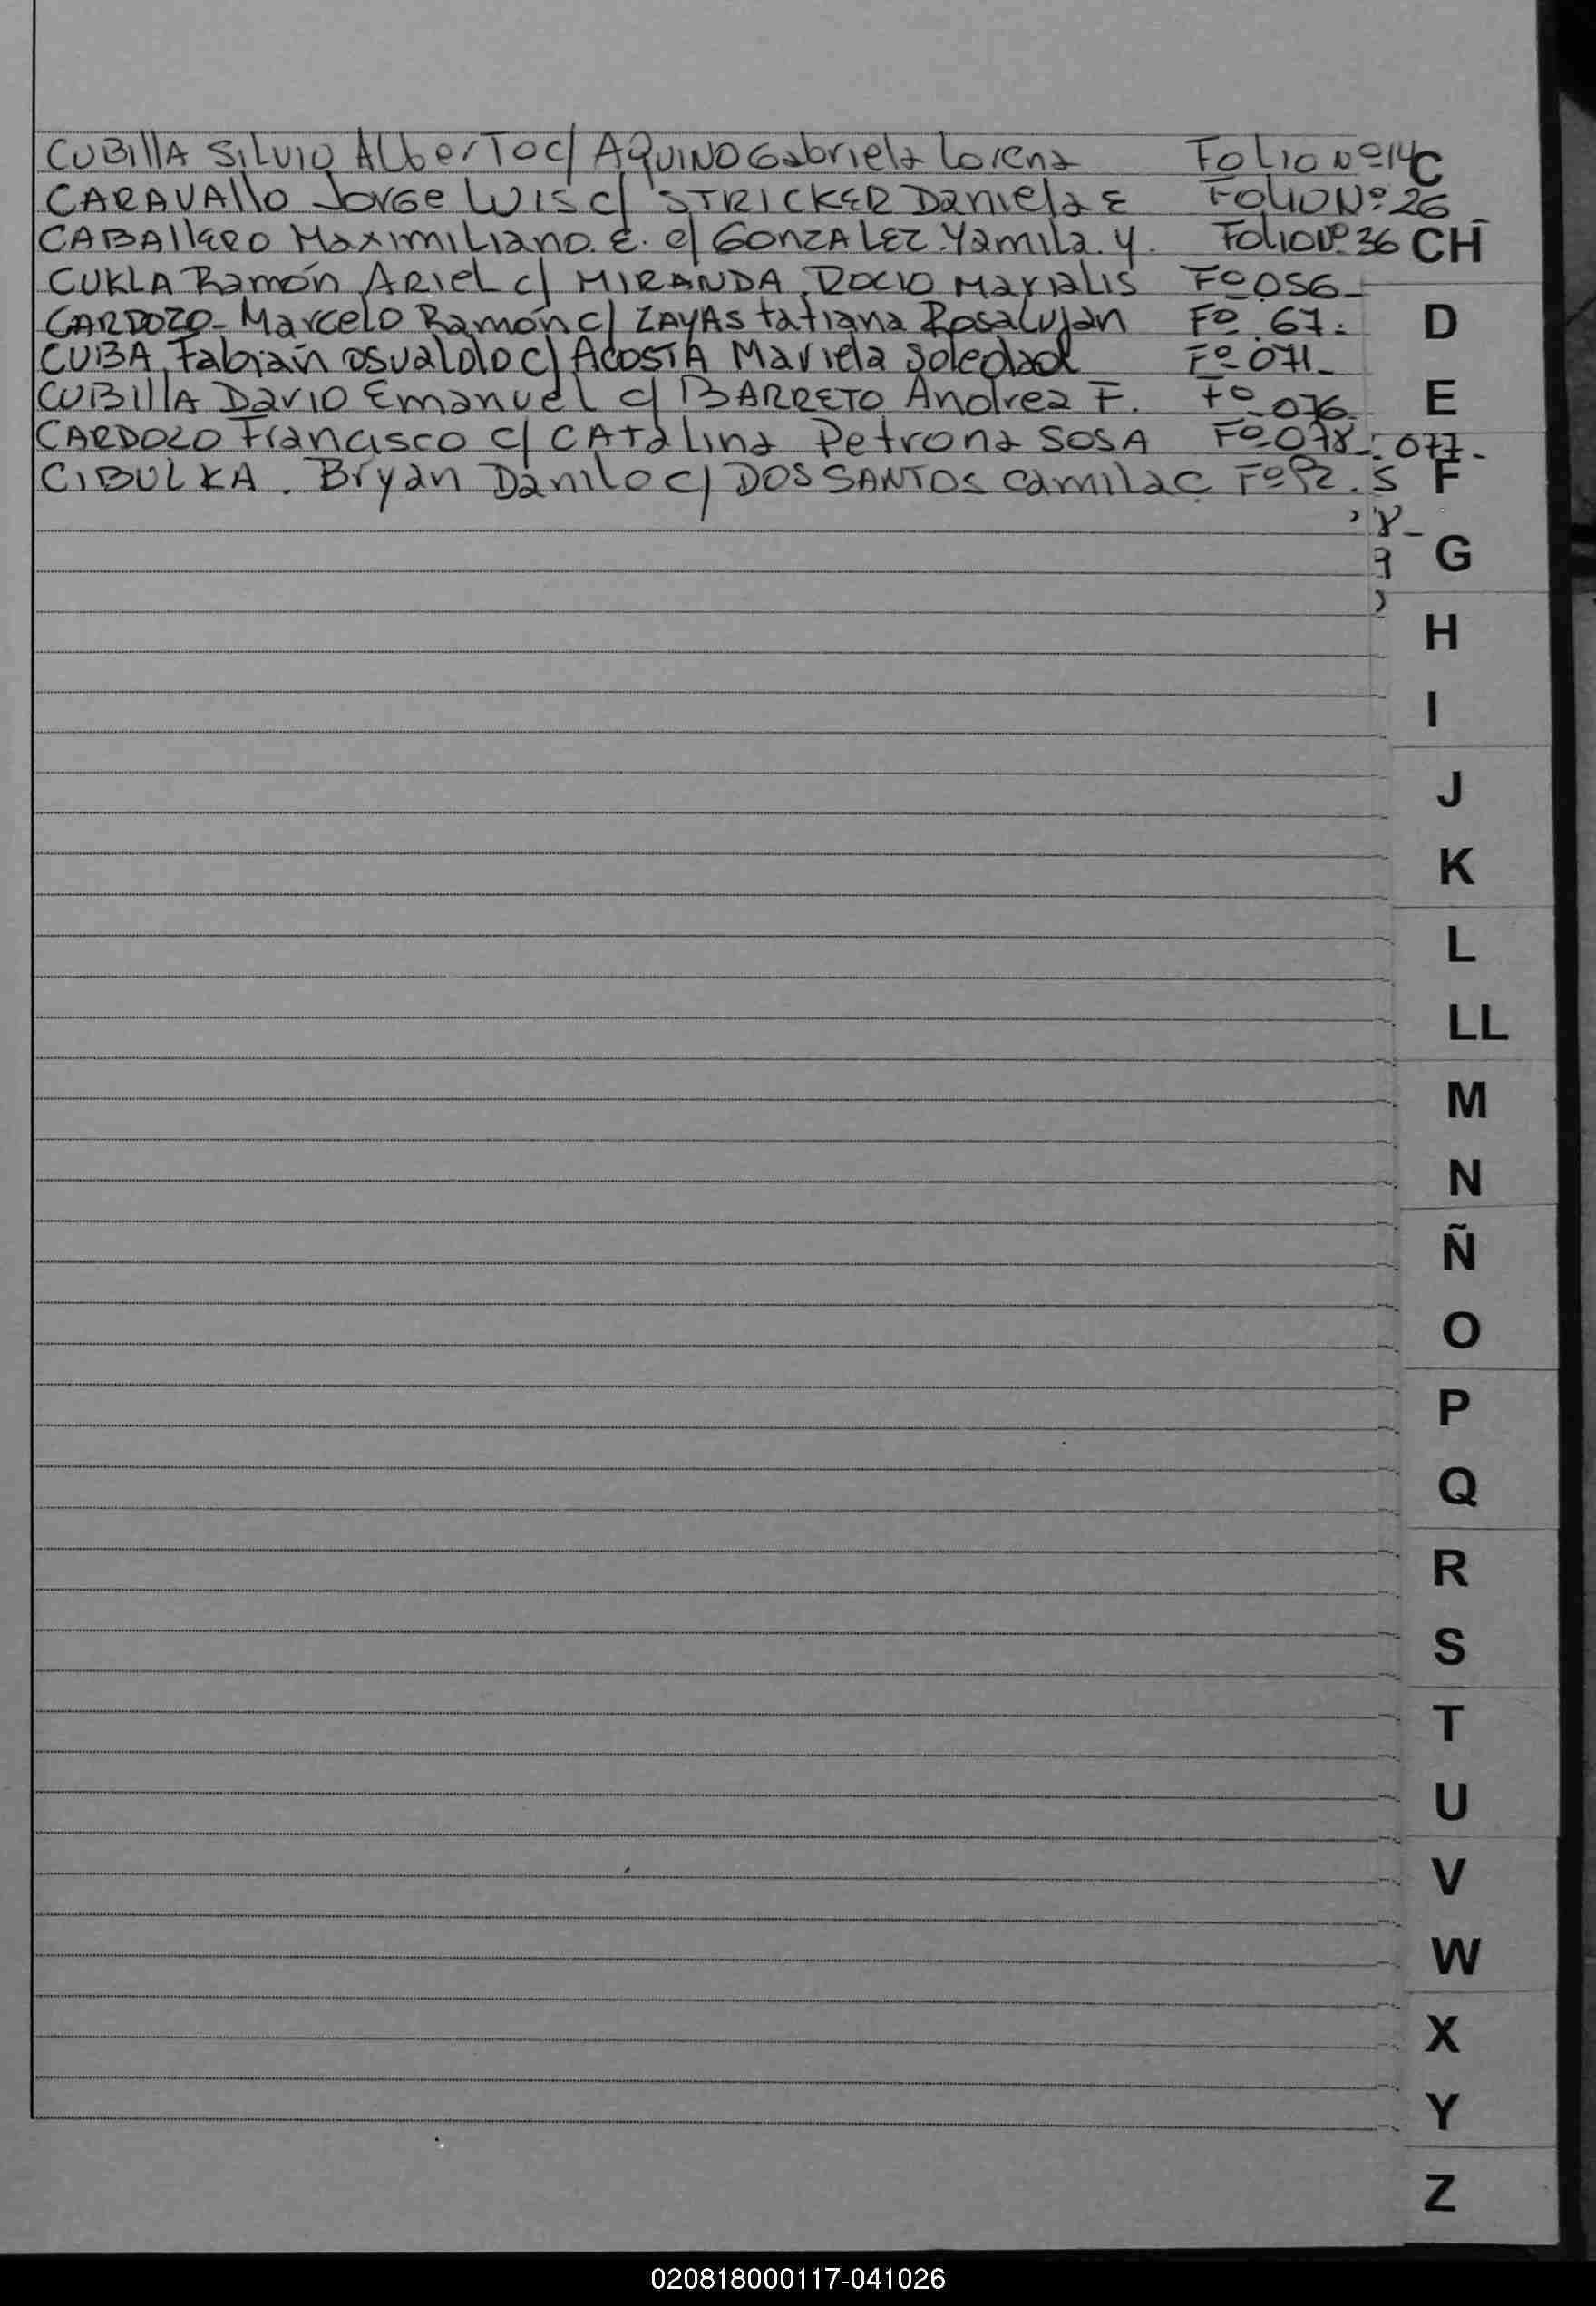 CUBIllA SILVIO AlberTo c/ AQUINO Gabriela Lorena Folio Nº 14 C
CARAVAllO Jorge LUIS c/ STRICKER Daniela E Folio Nº 26
CABAllERO Maximiliano. E. c/ GONZALEZ Yamila. Y. Folio Nº 36 CH
CUKLA Ramón ARIEL c/ MIRANDA ROCIO Marialis Fº 056
CARDOZO- Marcelo Ramón c/ ZAYAS tatiana Rosa Lujan Fº 67. D
CUBA, Fabián osvaldo c/ ACOSTA Mariela Soledad Fº 071
CUBIllA DARIO Emanuel c/ BARRETO Andrea F. Fº 076 E
CARDOZO Francisco c/ CATAlina Petrona SOSA Fº 078. 077-
CIBULKA. Bryan Danilo c/ DOS SANTOS camila C Fº F
G
H
I
J
K
L
LL
M
N
Ñ
O
P
Q
R
S
T
U
V
W
X
Y
Z
020818000117-041026